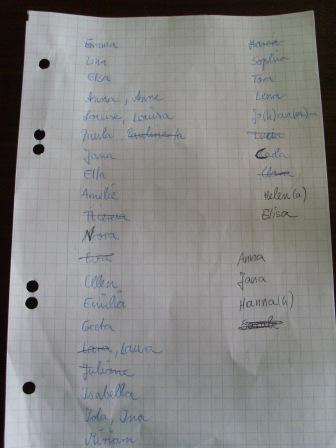 Emma
Lina
Elsa
Anna, Anne
Louise, Louisa
Paula
Jana
Ella
Amelie
Theresa
Nora
Eva
Ellen
Emilia
Greta
Lara, Laura
Juliane
Isabella
Ida, Ina
Miriam
Karen
Sophia
Tara
Lena
Jo(h)an(n)a
Carla
Clara
Helen(a)
Elisa
Anna
Jana
Hanna(h)